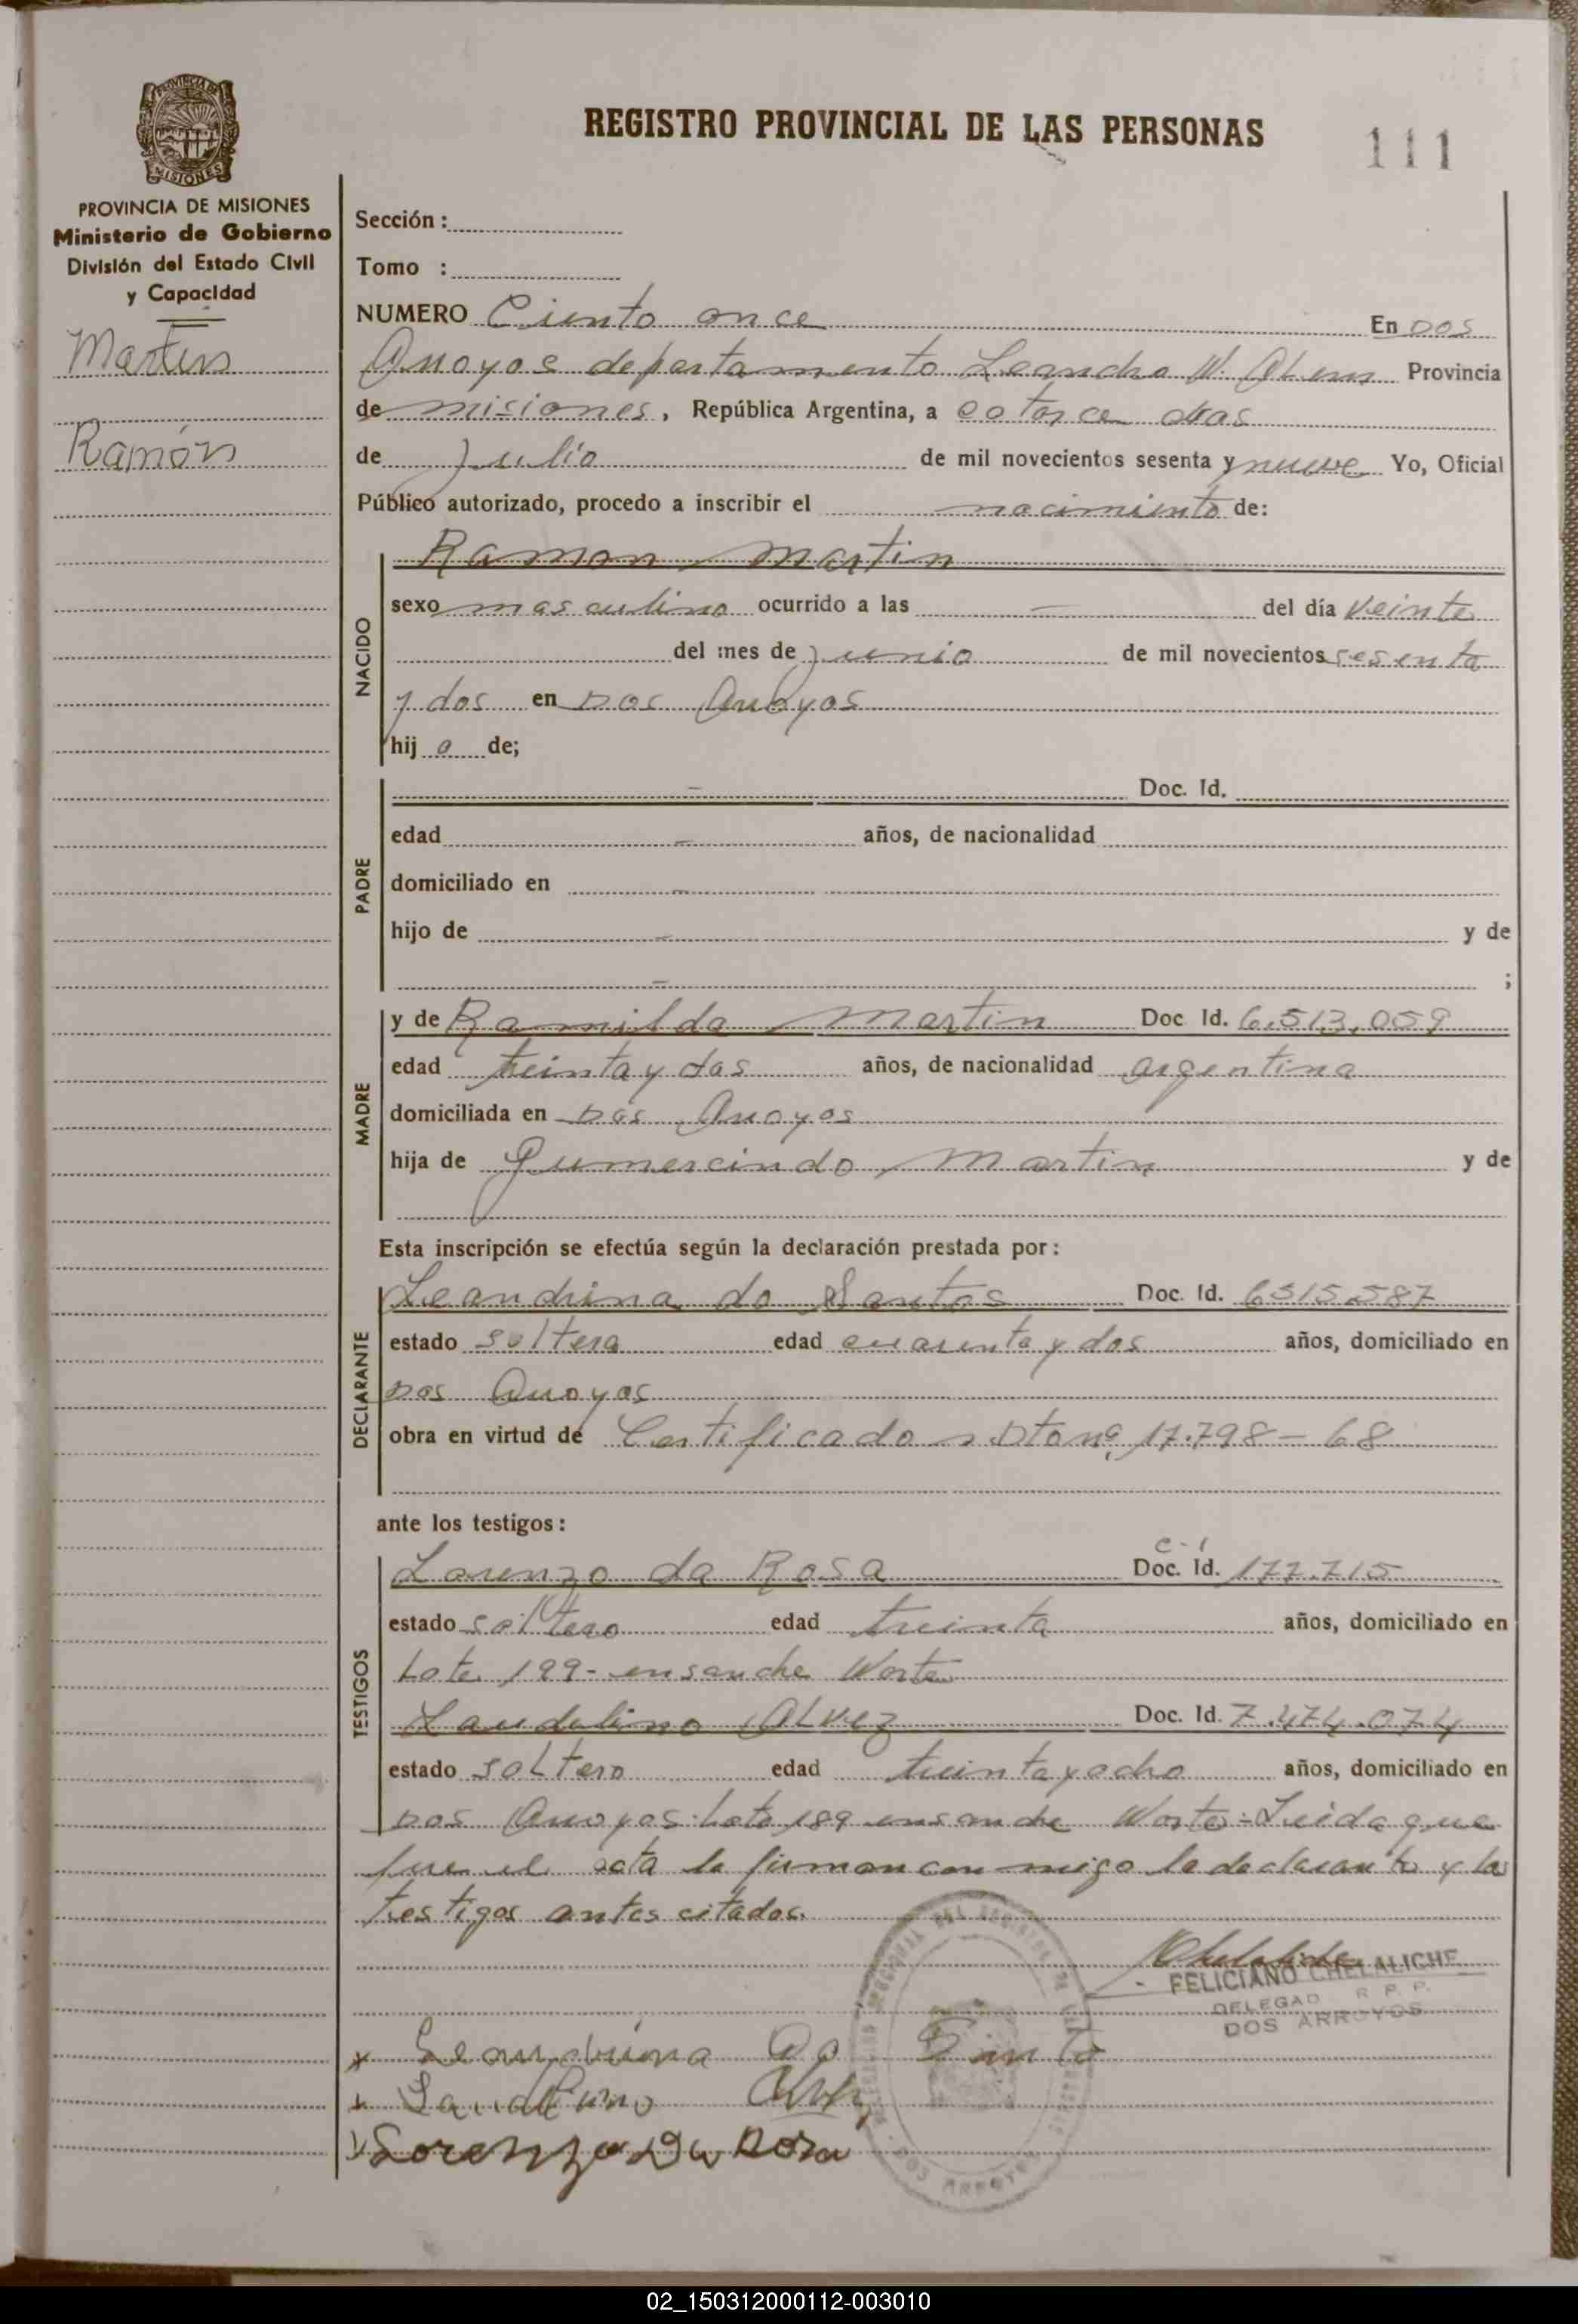 REGISTRO PROVINCIAL DE LAS PERSONAS
111
PROVINCIA DE MISIONES
Ministerio de Gobierno
División del Estado Civil
y Capacidad
Martin
Ramón
Sección :
Tomo :
NUMERO Ciento once En Dos
Arroyos departamento Leandro N. Alem Provincia
de misiones, República Argentina, a catorce dias
de Julio de mil novecientos sesenta y nueve Yo, Oficial
Público autorizado, procedo a inscribir el nacimiento de:
NACIDO
Ramon Martin
sexo masculino ocurrido a las — del día Veinte
del mes de junio de mil novecientos sesenta
y dos en Dos Arroyos
hij o de;
PADRE
- Doc. Id.
edad - años, de nacionalidad
domiciliado en -
hijo de - y de
- ;
MADRE
y de Ramilda Martin Doc Id. 6.513.059
edad treinta y dos años, de nacionalidad argentina
domiciliada en Dos Arroyos
hija de Gumercindo Martin y de
Esta inscripción se efectúa según la declaración prestada por:
DECLARANTE
Leandrina do Santos Doc. Id. 6515.587
estado soltera edad cuarenta y dos años, domiciliado en
Dos Arroyos
obra en virtud de Certificado Dto nº 17.798-68
ante los testigos:
TESTIGOS
Lorenzo da Rosa Doc. Id. C.I 177.715
estado soltero edad treinta años, domiciliado en
Lote 199- ensanche Norte
Laudelino Alvez Doc. Id. 7.474.074
estado soltero edad treinta y ocho años, domiciliado en
Dos Arroyos Lote 189 ensanche Norte = Leida que
fue el acta la firman con migo la declarante y los
testigos antes citados.
FELICIANO CHELALICHE
DELEGAD R P P.
DOS ARROYOS
Leandrina Do Santo
Laudelino Alvez
Lorenzo Da Rosa
DOS ARROYOS
02_150312000112-003010